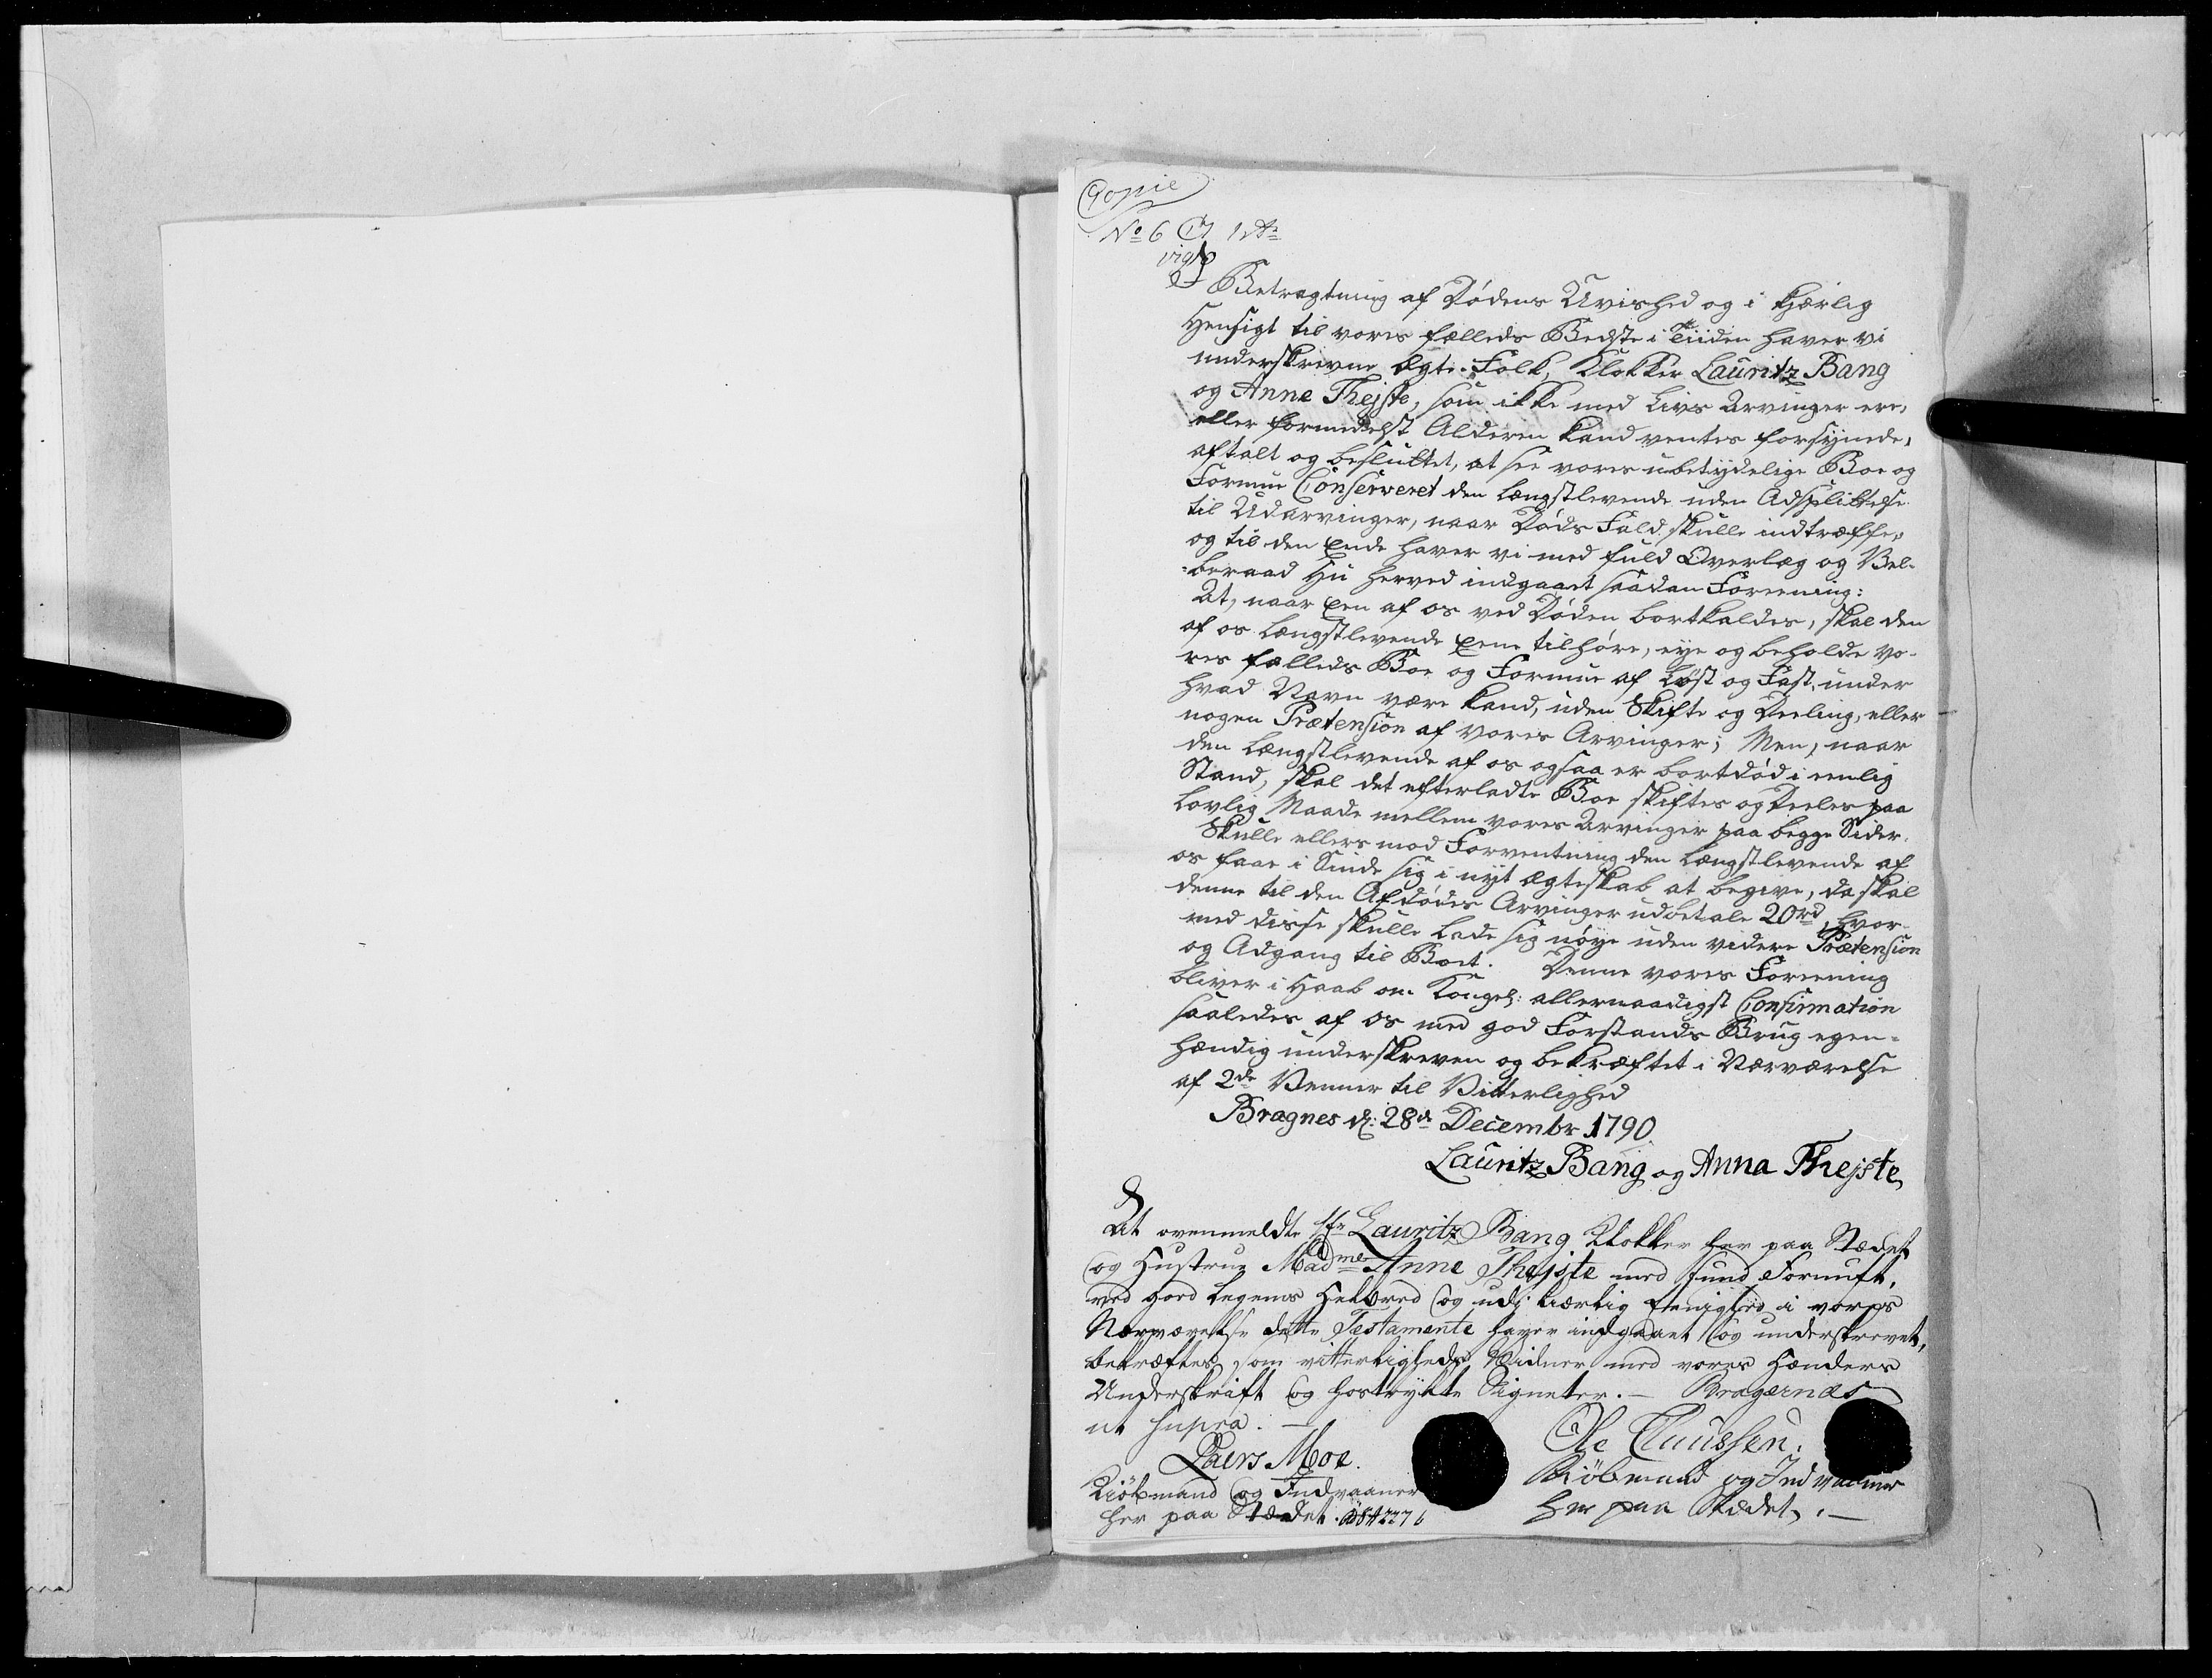 Copie
No 6
I Betragtning af Dødens Uvished og i kjærlig
Hensigt til vores fælleds Bedste i Tiiden haver vi
underskrivne Ægte-Folk, Klokker Lauritz Bang
og Anne Thejste, som ikke med Livs Arvinger ere,
eller formedelst Alderen kand ventes forsÿnede,
aftalt og besluttet, at see vores ubetÿdelige Boe og
Formue Conserveret den Længstlevende uden Adsplittelse
til Udarvinger, naar Døds Fald skulle indtræffe,
og til den Ende haver vi med fuld Overlæg og Vel-
beraad Hu herved indgaaet saadan Foreening:
At, naar Een af os ved Døden bortkaldes, skal den
af os Længstlevende Eene tilhøre, eÿe og beholde vo-
res fælleds Boe og Formue af Løst og Fast, under
hvad Navn være kand, uden Skifte og Deeling, eller
nogen Prætension af vores Arvinger; Men, naar
den Længstlevende af os ogsaa er bortdød i eenlig
Stand, skal det efterladte Boe skiftes og Deeles paa
Lovlig Maade mellem vores Arvinger paa begge Sider.
Skulle ellers mod Forventning den Længstlevende af
os faae i Sinde sig i nÿt Ægteskab at begive, da skal
denne til den Afdødes Arvinger udbetale 20rd, hvor-
med disse skulle lade sig nøÿe uden videre Prætension
og Adgang til Boet. Denne vores Foreening
bliver i Haab om Kongel: allernaadigst Confirmation
saaledes af os med god Forstands Brug egen-
hændig underskreven og bekræftet i Nærværelse
af 2de Venner til Vitterlighed
Bragnes d: 28de Decembr 1790
Lauritz Bang og Anna Thejste
At ovenmeldte Hr Lauritz Bang Klokker her paa Stædet
og Hustrue Madme Anne Thejste med sund Fornuft,
ved god Legems Helbred og udj kierlig Eenighed i vores
Nærværelse dette Testamente haver indgaaet og underskrevet,
bekræftes som vitterligheds Vidner med vores Hænders
Underskrift og hostrykte Signeter. – Bragernæs
ut supra. –
Laers Moe. Ole Claussen.
Kiöbmand og Indvaaner Kiöbmand og Indvaaner
her paa Stædet. her paa Stædet. –